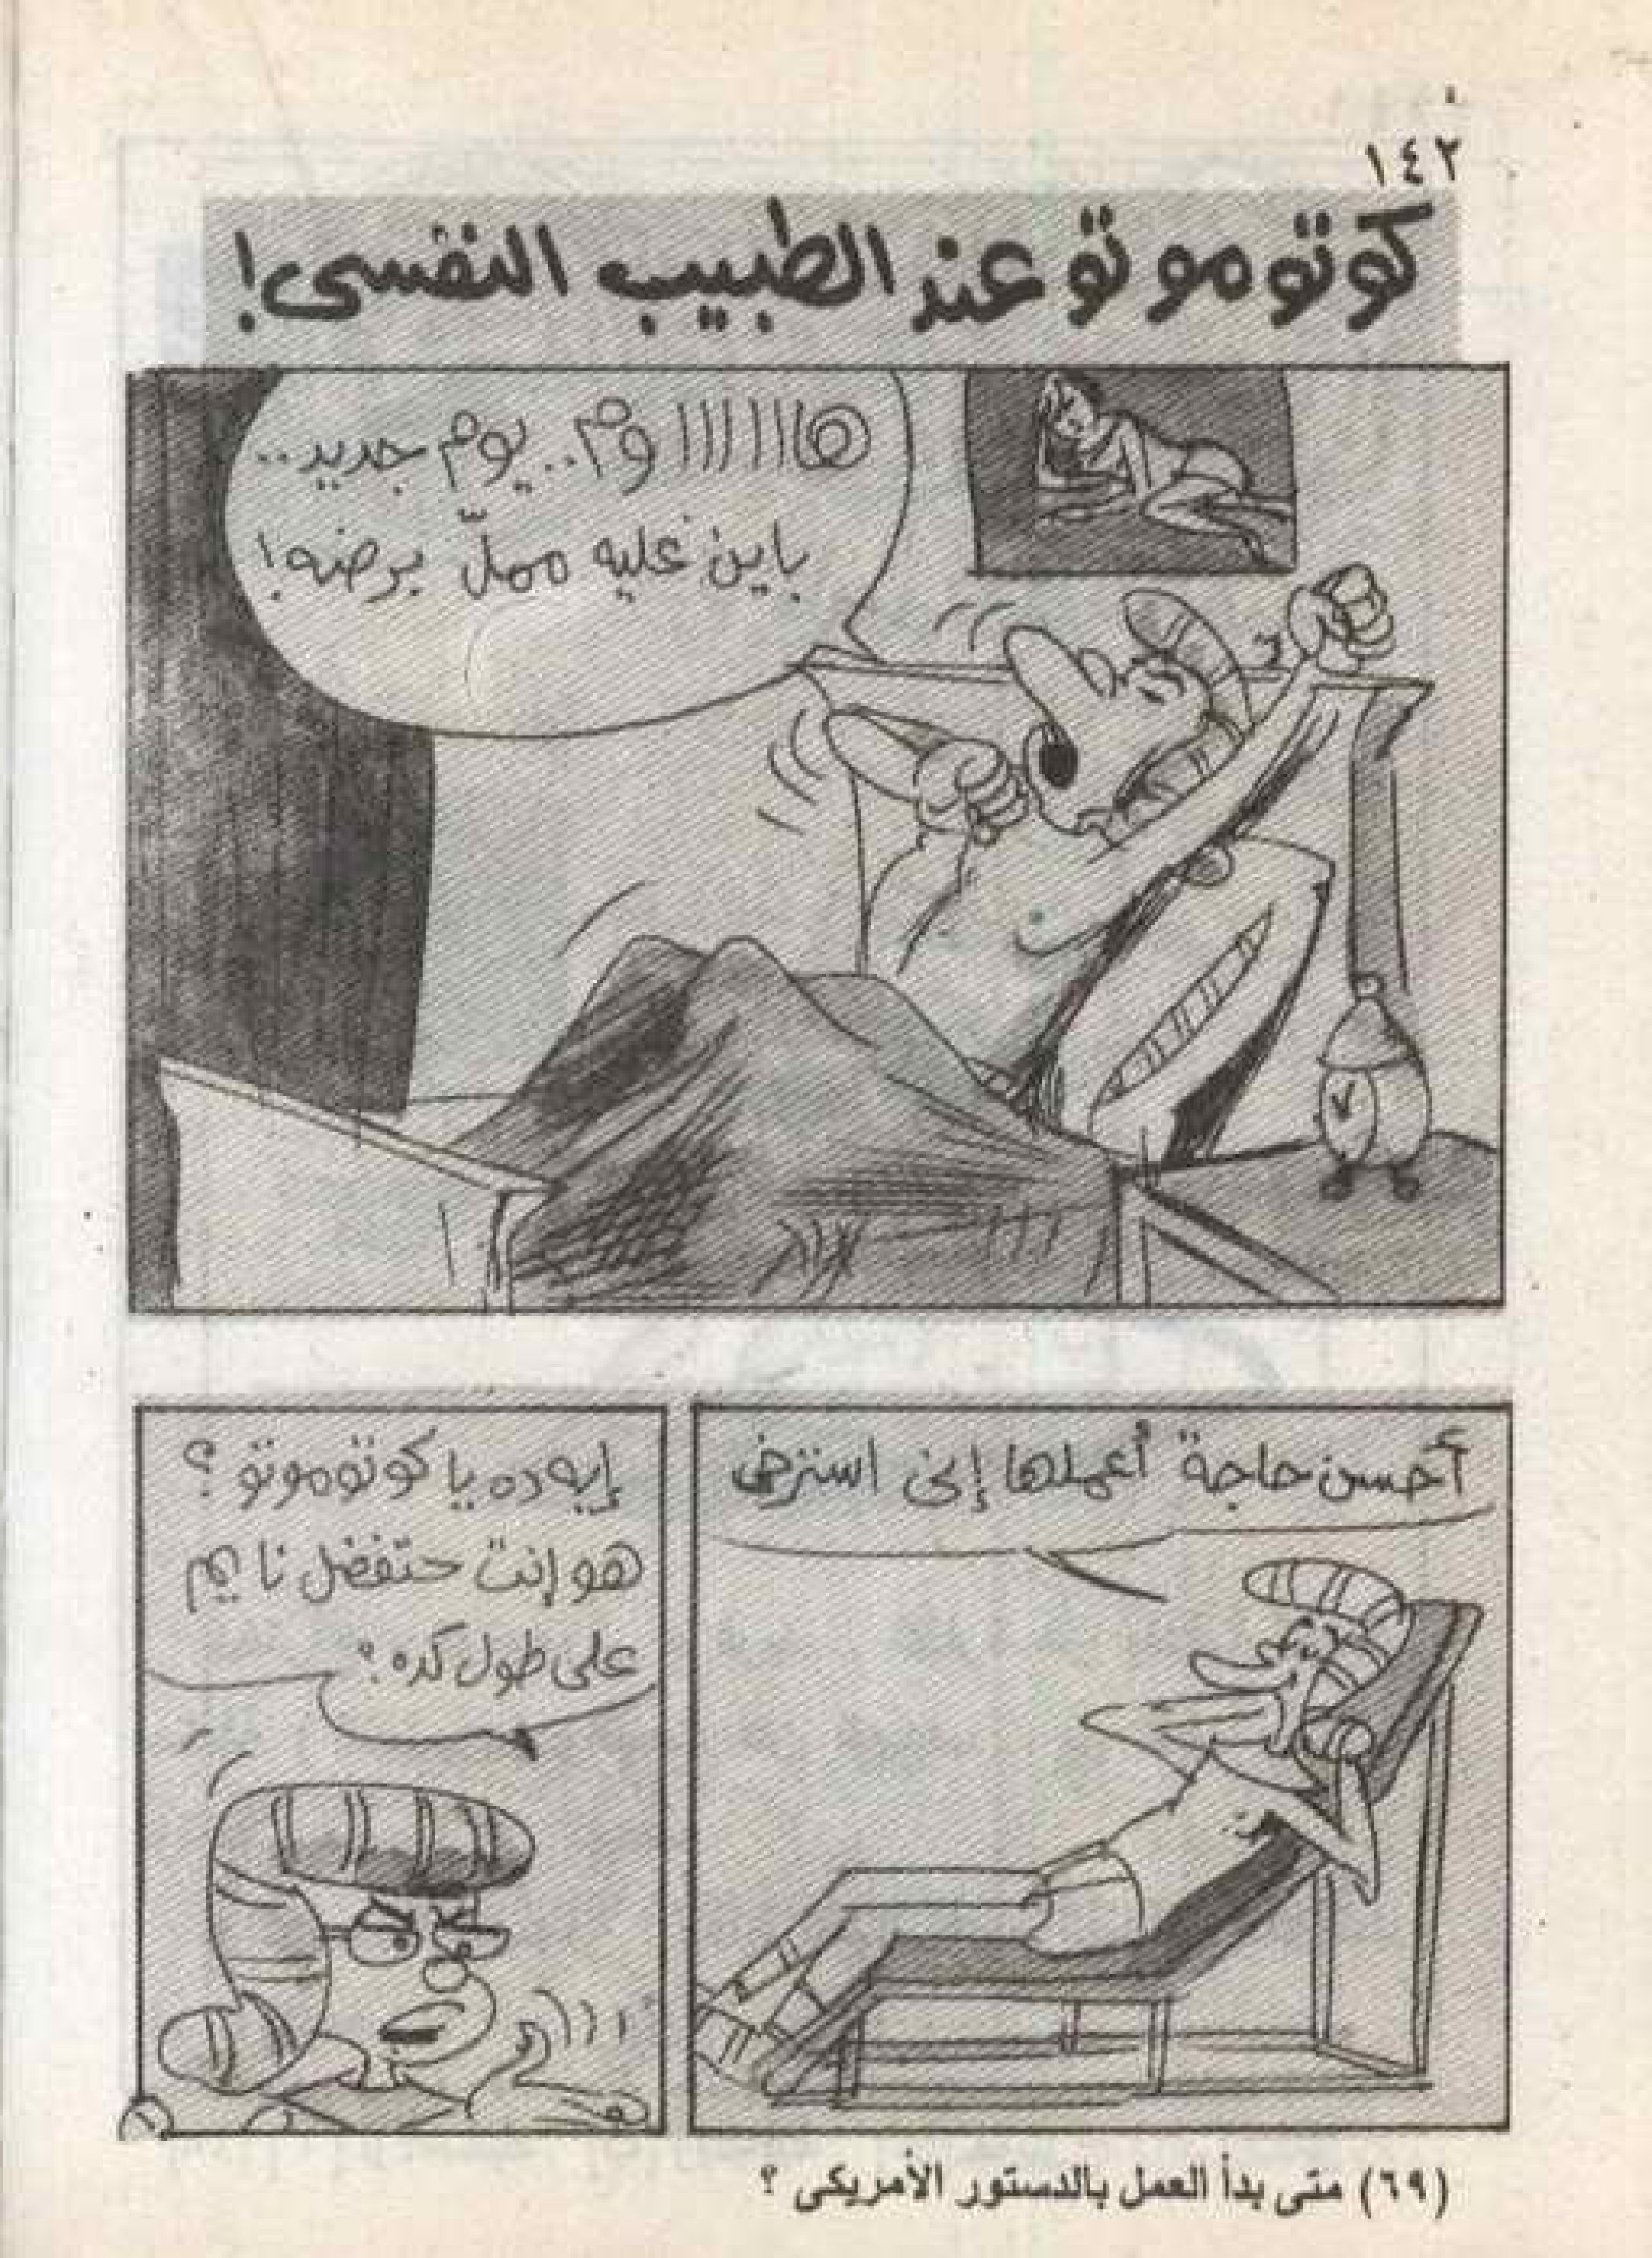 ١٤٢
كوتوموتو عند الطبيب النفسى!
هااااااااوم.. يوم جديد..
باين عليه مملّ برضه!
أحسن حاجة أعملها إنى استرخى
إيه ده يا كوتوموتو؟
هو إنت حتفضل نايم
على طول كده؟
(٦٩) متى بدأ العمل بالدستور الأمريكى ؟